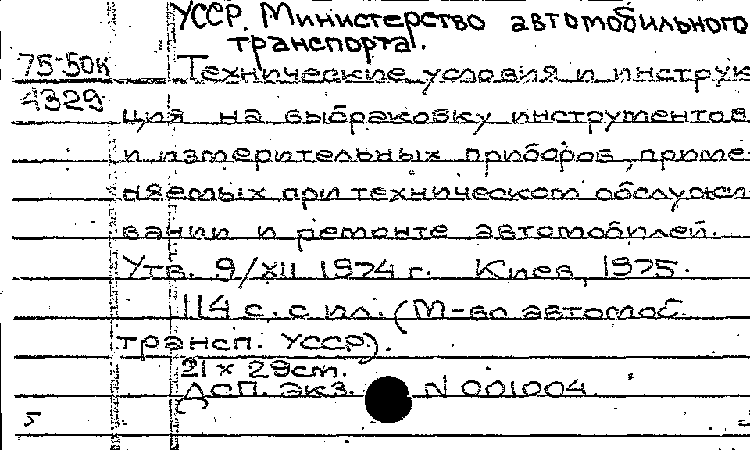 УССР. Министерство автомобильного
транспорта.
75-50к
Технические условия и инструк
4329
ция на выбраковку инструментов
и измерительных приборов, приме-
няемых при техническом обслужи
вании и ремонте автомобилей.
Утв. 9/XII 1974 г. Киев, 1975.
114 с. с ил. (М-во автомоб.
трансп. УССР).
21 x 29см.
Дсп. экз. N 001004.